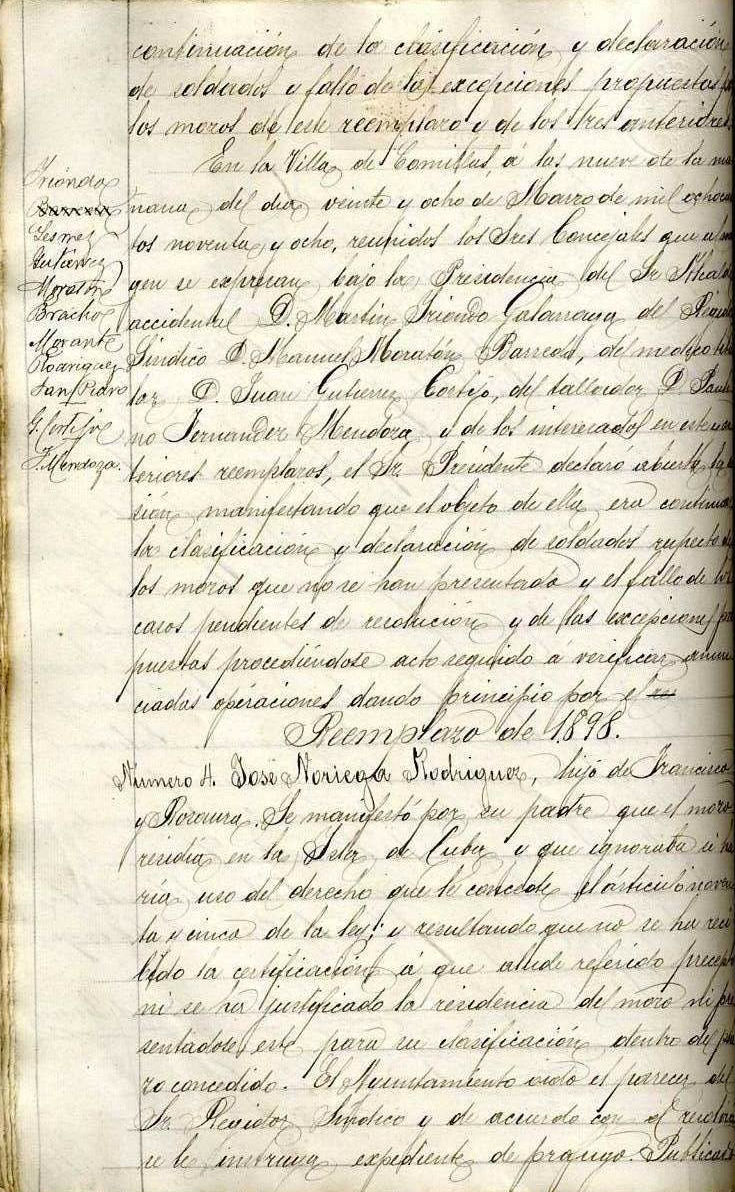 continuación de la clasificación y declaración
de soldados y fallo de las excepciones propuestas
los mozos de este reemplazo y de los tres anteriores.
En la Villa de Comillas, á las nueve de la ma
Iriondo
Gutierrez
Moratón
Bracho
Morante
Rodriguez
San Pedro
G. Cortijo
F. Mendoza.
ñana del dia veinte y ocho de Marzo de mil ochocien
tos noventa y ocho, reunidos los Sres Concejales que al mar
gen se expresan bajo la Presidencia del Sr. Alcalde
accidental D. Martin Iriondo Galarraga del Regidor
Síndico D. Manuel Moratón Barreda, del medico titu
lar D. Juan Gutierrez Cortijo, del tallador D. Pauli
no Fernandez Mendoza y de los interesados en este y an
teriores reemplazos, el Sr. Presidente declaró abierta la se
sión manifestando que el objeto de ella era continuar
la clasificación y declaración de soldados respecto de
los mozos que no se han presentado y el fallo de los
casos pendientes de resolución y de las excepciones pro
puestas procediéndose acto seguido a verificar anun
ciadas operaciones dando principio por el
Reemplazo de 1898.
Número 4. José Noriega Rodriguez, hijo de Francisco
y Rosaura. Se manifestó por su padre que el mozo
residia en la Isla de Cuba y que ignoraba si ha
ría uso del derecho que le concede el árticulo noven
ta y cinco de la ley; y resultando que no se ha reci
bido la certificación á que alude referido precepto
ni se ha justificado la residencia del mozo ni pre
sentádose este para su clasificación dentro del pla
zo concedido. El Ayuntamiento oido el parecer del
Sr. Regidor Síndico y de acuerdo con el
se le instruya expediente de prófugo. Publicado